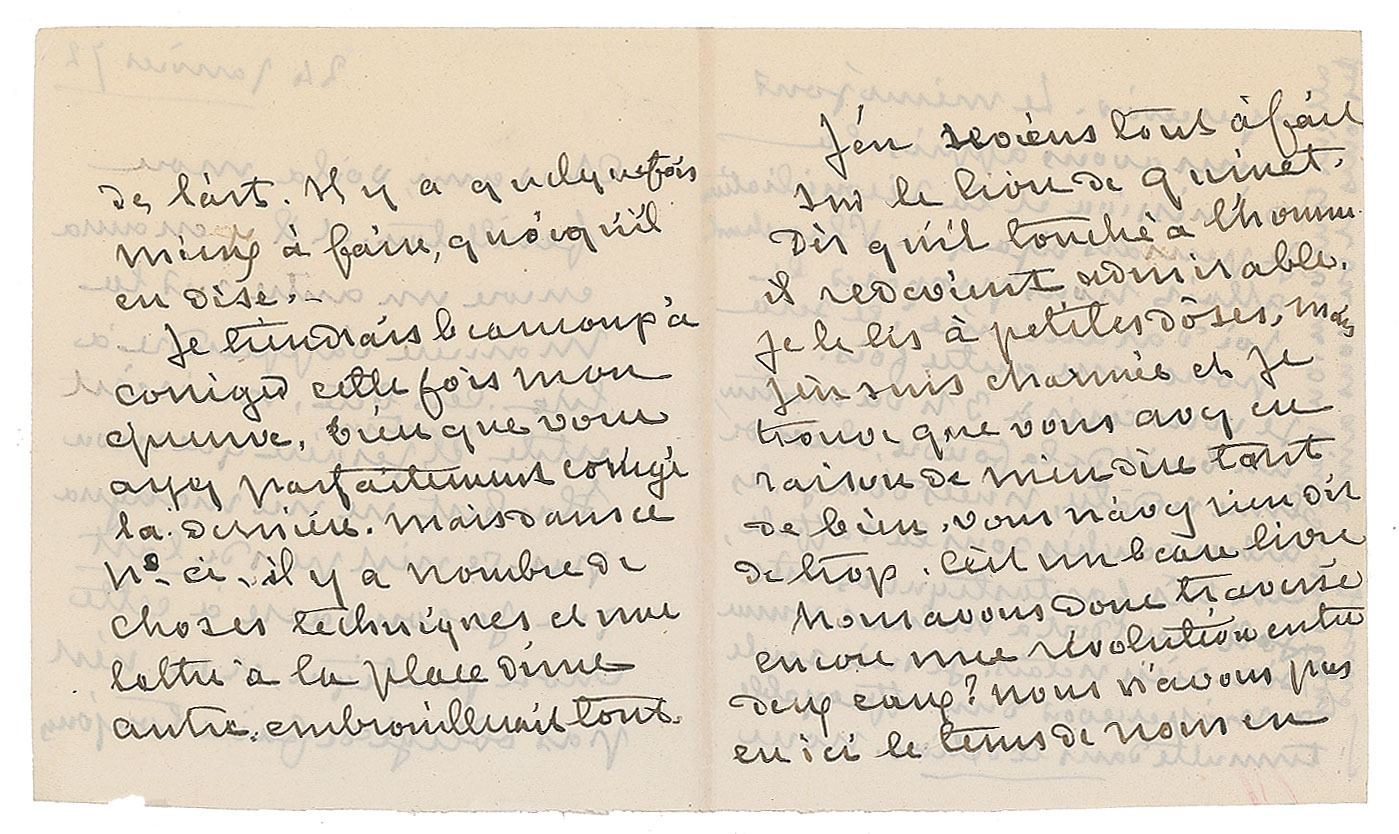 de l'art. Il y a quelquefois
mieux à faire, quoiqu'il
en dise. –
Je tiendrais beaucoup à
corriger cette fois mon
épreuve, bien que vous
ayez parfaitement corrigé
la dernière. Mais dans ce
No ci, il y a nombre de
choses techniques et une
lettre à la place d'une
autre, embrouillerait tout.
J'en reviens tout à fait
sur le livre de Quinet.
Dès qu'il touche à l'homme
il redevient admirable.
je le lis à petites doses, mais
j'en suis charmée et je
trouve que vous avez eu
raison de m'en dire tant
de bien. vous n'avez rien dit
de trop. C'est un beau livre
Nous avons donc traversé
encore une révolution entre
deux eaux? nous n'avons pas
eu ici le tems de nous en